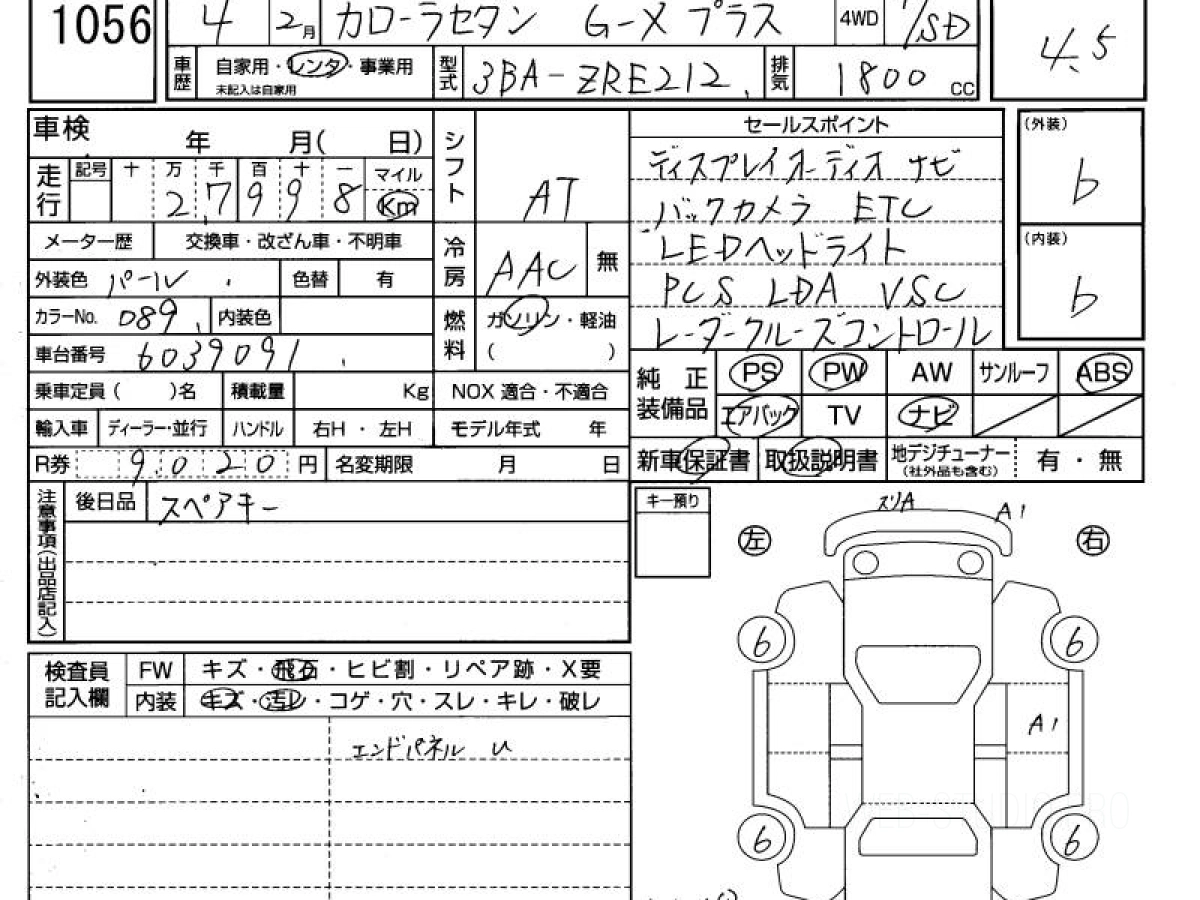 1056 4 2月 カローラセダン G-X プラス 4WD 7/SD 4.5
車歴 自家用・レンタ・事業用 未記入は自家用 型式 3BA-ZRE212 排気 1800 CC
車検 年 月( 日) シフト AT セールスポイント (外装) 6
走行 記号 十 万 千 百 十 一 マイル Km
2 7 9 9 8
ディスプレイオーディオ ナビ
バックカメラ ETC
LEDヘッドライト
PCS LDA VSC
レーダークルーズコントロール
(内装) 6
メーター歴 交換車・改ざん車・不明車 冷房 AAC 無
外装色 パール 色替 有
カラーNo. 089 内装色 燃料 ガソリン・軽油 ( )
車台番号 6039091
乗車定員( )名 積載量 Kg NOX 適合・不適合
輸入車 ディーラー・並行 ハンドル 右H・左H モデル年式 年
純正装備品 PS PW AW サンルーフ ABS
エアバック TV ナビ
R券 9,020 円 名変期限 月 日
新車保証書 取扱説明書 地デジチューナー (社外品も含む) 有・無
注意事項(出品店記入) 後日品 スペアキー
キー預り
左 右
スリA A1
6 6
A1
6 6
検査員記入欄 FW キズ・飛石・ヒビ割・リペア跡・X要
内装 キズ・汚レ・コゲ・穴・スレ・キレ・破レ
エンドパネル U